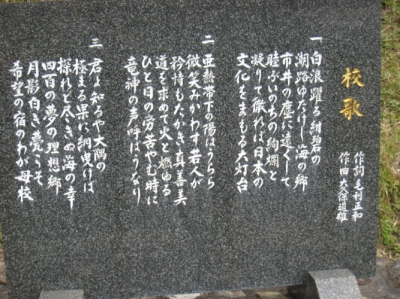 校歌
作詞 毛利正和
作曲 大保道雄
一 白浪躍る紺碧の
潮路ゆたけし海の郷
市井の塵に遠くして
睦ぶいのちの絢爛と
凝りて徹れば日本の
文化をまもる大灯台
二 亜熱帯下の陽はうらら
微笑みかわす若人が
矜持もたかき真善美
道を求めて火と燃ゆる
ひと日の労苦やむ時に
竜神の声呼ばうなり
三 君よ知るや大隅の
極まる果に網曳けば
探れど尽きぬ海の幸
四百の夢の理想郷
月影白き甍こそ
希望の宿のわが母校